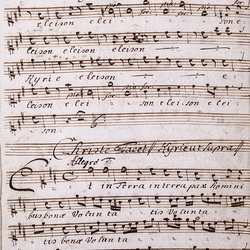 eleison elei son e
leison eleison eleison
Kyrie eleison e
leison elei son elei son elei
son.
Christe tacet // Kyrie ut supra //
Allegro
Et in terra in terra pax homini
bus bonæ Volunta tis Volunta
tis bonæ Volunta